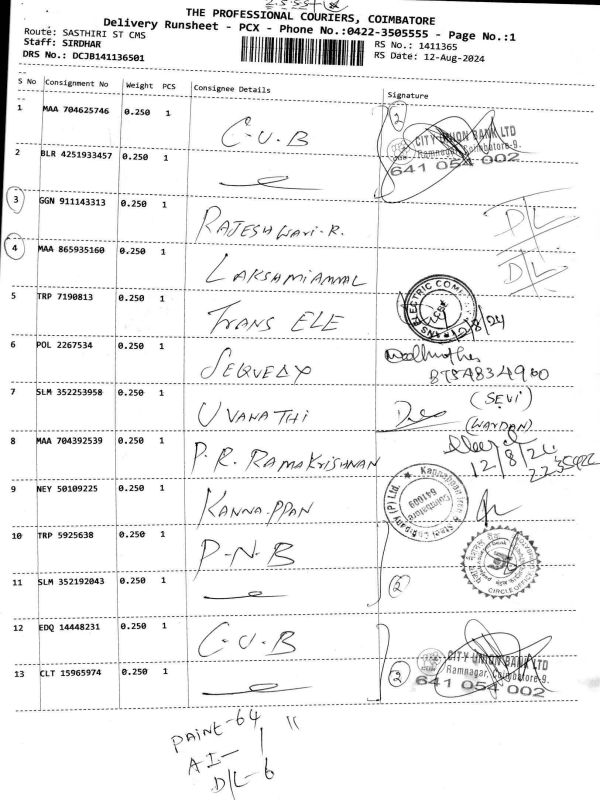 THE PROFESSIONAL COURIERS, COIMBATORE
Delivery Runsheet - PCX - Phone No.:0422-3505555 - Page No.:1
Route: SASTHIRI ST CMS
Staff: SIRDHAR
DRS No.: DCJB141136501
RS No.: 1411365
RS Date: 12-Aug-2024
S No Consignment No Weight PCS Consignee Details Signature
1 MAA 704625746 0.250 1 C-U-B 2
CITY UNION BANK LTD
Ramnagar, Coimbatore-9.
641 054 002
2 BLR 4251933457 0.250 1
3 GGN 911143313 0.250 1 RAJESHWARI-R. D/L
4 MAA 865935160 0.250 1 LAKSHMIAMMAL D/L
5 TRP 7190813 0.250 1 TRANS ELE
6 POL 2267534 0.250 1
7 SLM 352253958 0.250 1 UVANATHI (SEVI)
(WARDAN)
8 MAA 704392539 0.250 1 P.R. RAMAKRISHNAN 12/8/24
9 NEY 50109225 0.250 1 KANNAPPAN
Coimbatore
641009
10 TRP 5925638 0.250 1 P-N-B
CIRCLE OFFICE
11 SLM 352192043 0.250 1 2
12 EDQ 14448231 0.250 1 C-U-B
CITY UNION BANK LTD
Ramnagar, Coimbatore-9.
641 054 002
13 CLT 15965974 0.250 1 2
PAINT-64
AI- 1 "
D/L-6